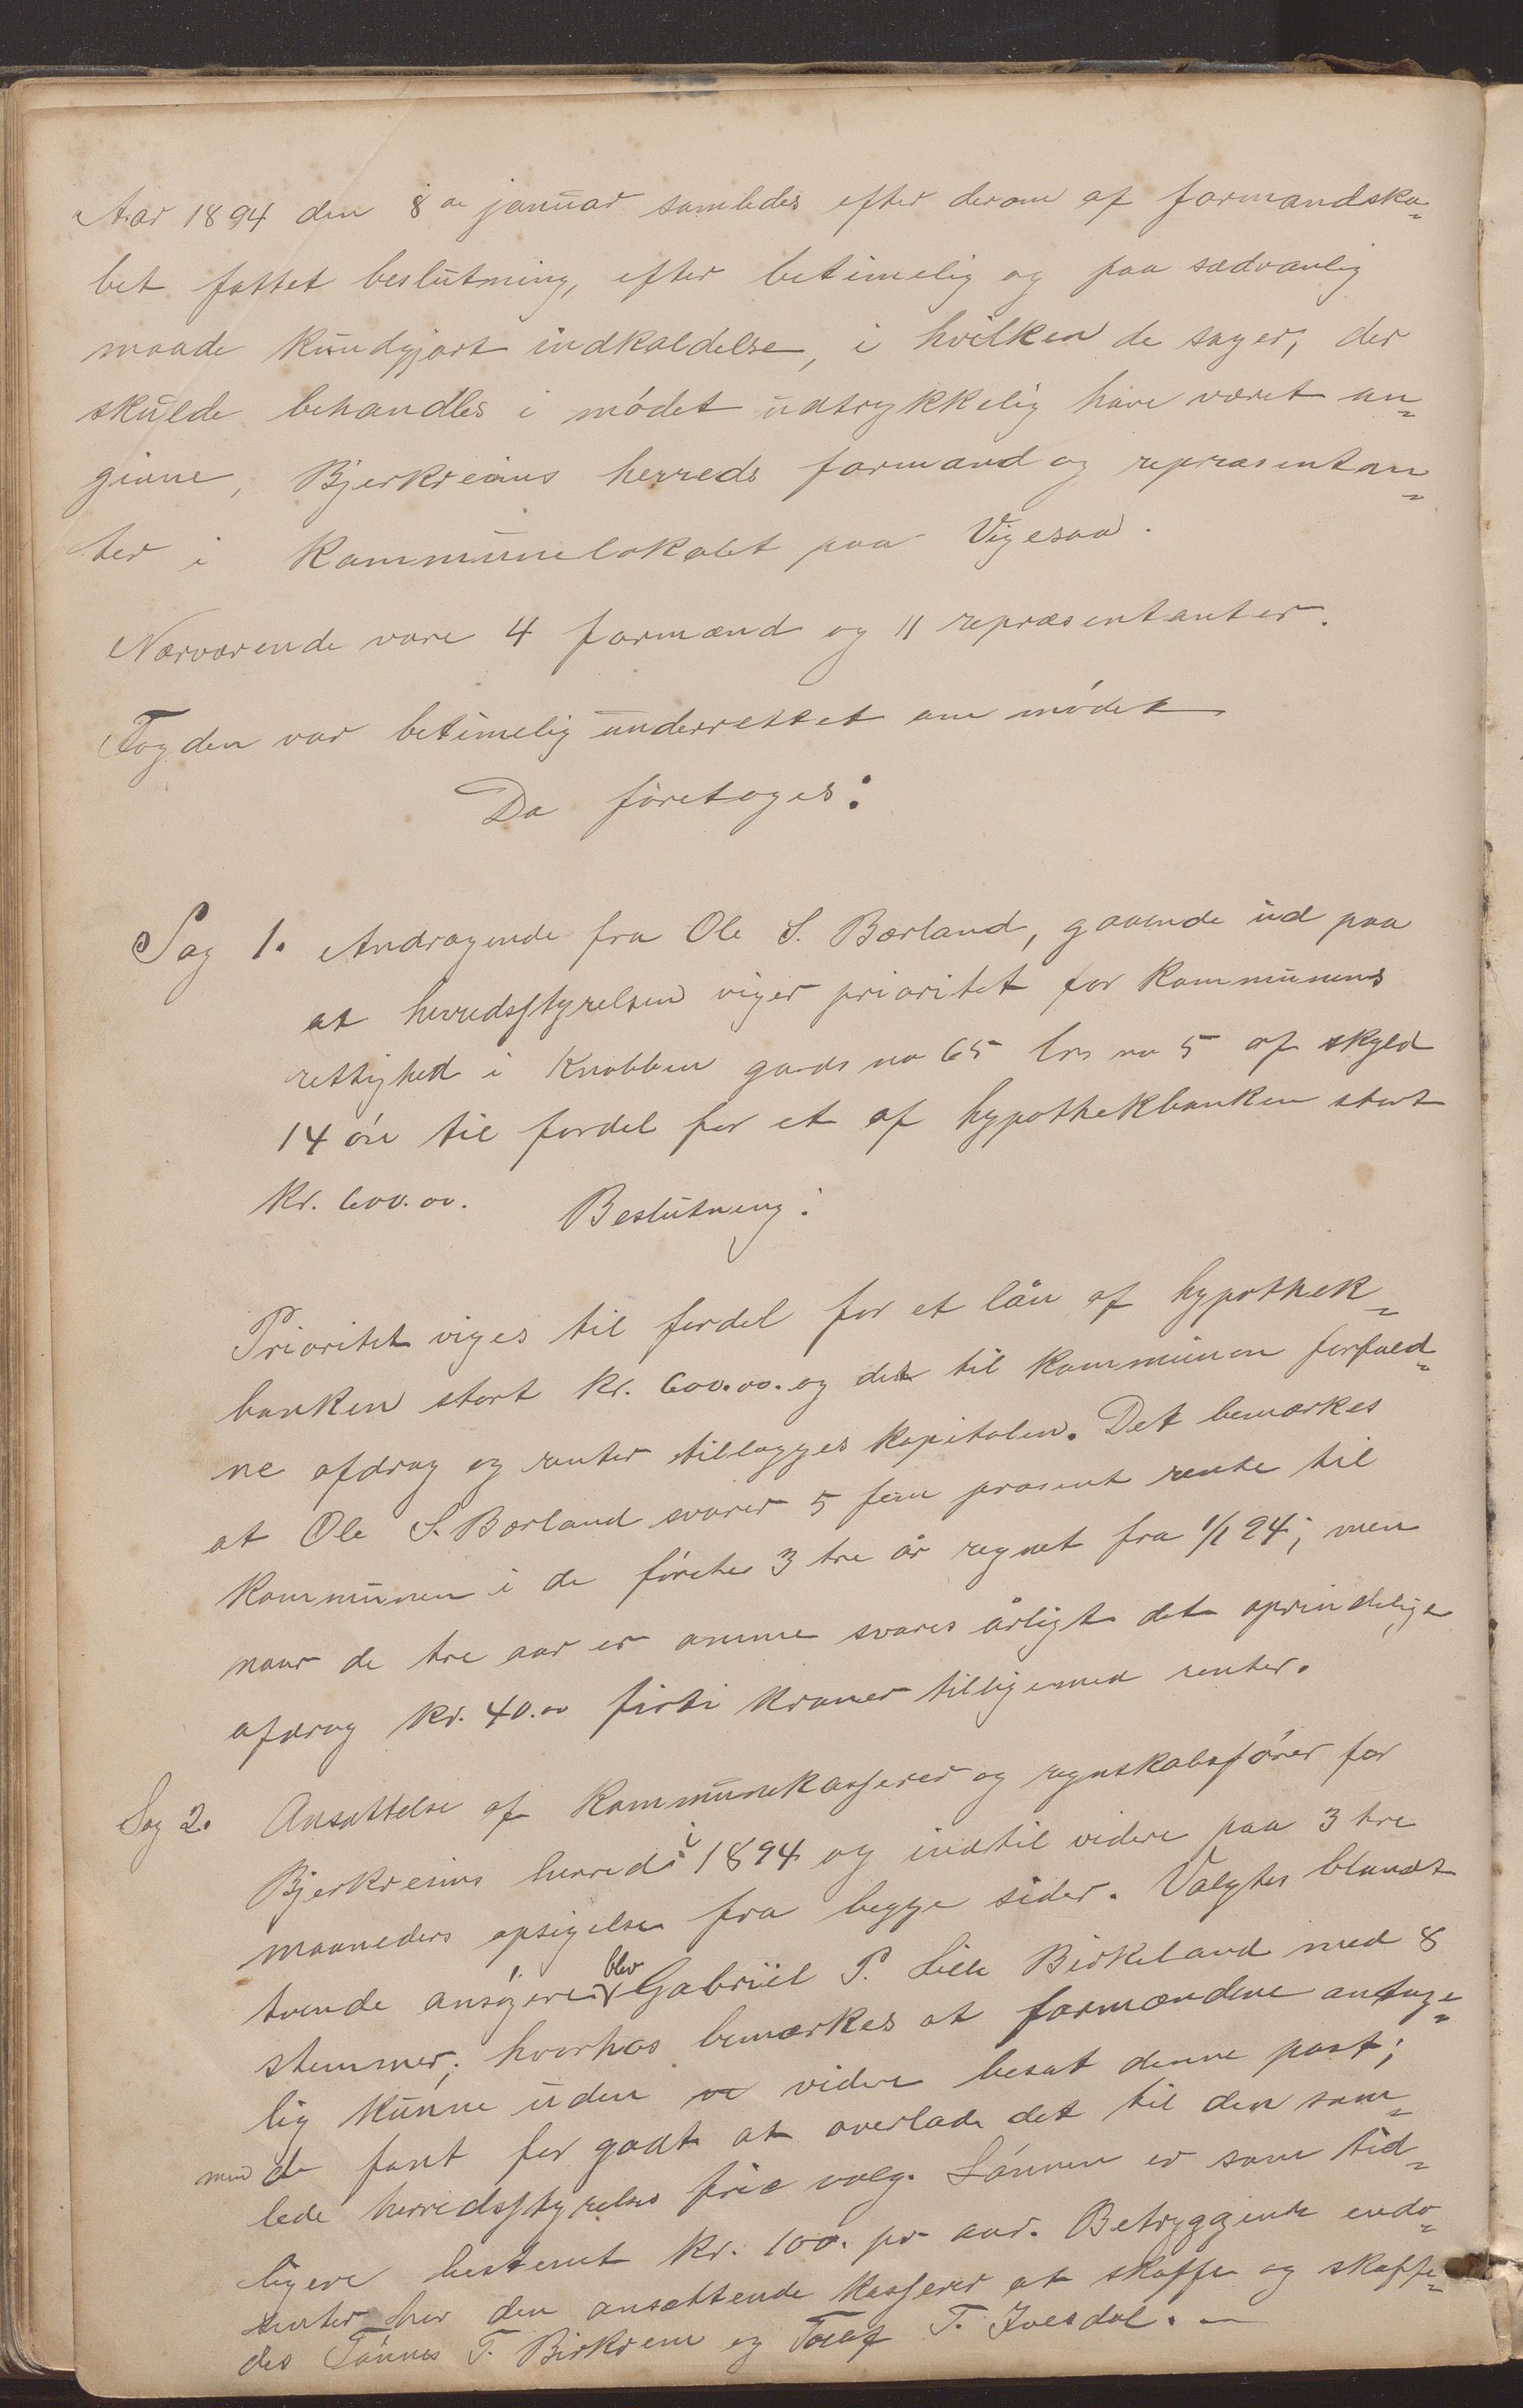 Aar 1894 den 8de januar samledes efter derom af formandska-
bet fattet beslutning, efter betimelig og paa sædvanlig
maade kundgjort indkaldelse, i hvilken de sager, der
skulde behandles i mödet udtrykkelig have været an-
givne, Bjerkreims herreds formænd og repræsentan-
ter i Kommunelokalet paa Vigesaa.
Nærværende vare 4 formænd og 11 repræsentanter.
Fogden var betimelig underrettet om mödet
Da foretoges:
Sag 1. Andragende fra Ole S. Bærland, gaaende ud paa
at herredsstyrelsen viger prioritet for kommunens
rettighed i Knobben gards no 65 brs no 5 af skyld
14 öre til fordel for et af hypothekbanken stort
kr. 600.00. Beslutning:
Prioritet viges til fordel for et lån af hypothek-
banken stort kr. 600.00. og det til kommunen forfald-
ne afdrag og renter tillægges kapitalen. Det bemærkes
at Ole S. Bærland svarer 5 fem prosent rente til
kommunen i de förstes 3 tre år regnet fra 1/1 94; men
naar de tre aar er omme svares årligt det oprindelige
afdrag kr. 40.00 firti kroner tilligemed renter.
Sag 2. Ansættelse af kommunekasserer og regnskabsförer for
Bjerkreims herred i 1894 og indtil videre paa 3 tre
maaneders opsigelse fra begge sider. Valgtes blandt
tvende ansögere blev Gabriel P. Lille Birkeland med 8
stemmer; hvorhos bemærkes at formændene antage-
lig kunne uden ve videre besat denne post;
men de fant for godt at overlade det til den sam-
lede herredsstyrelses frie valg. Lönnen er som tid-
ligere bestemt kr. 100. pr aar. Betryggende endo-
senter har den ansættende kasserer at skaffe og skaffe-
des Tönnes T. Birkrem og Tolaf T. Ivesdal. —